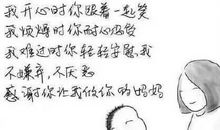 我开心时你跟着一起笑
我烦燥时你耐心哄我
我难过时你轻轻安慰我
不嫌弃,不厌恶
感谢你让我做你的妈妈